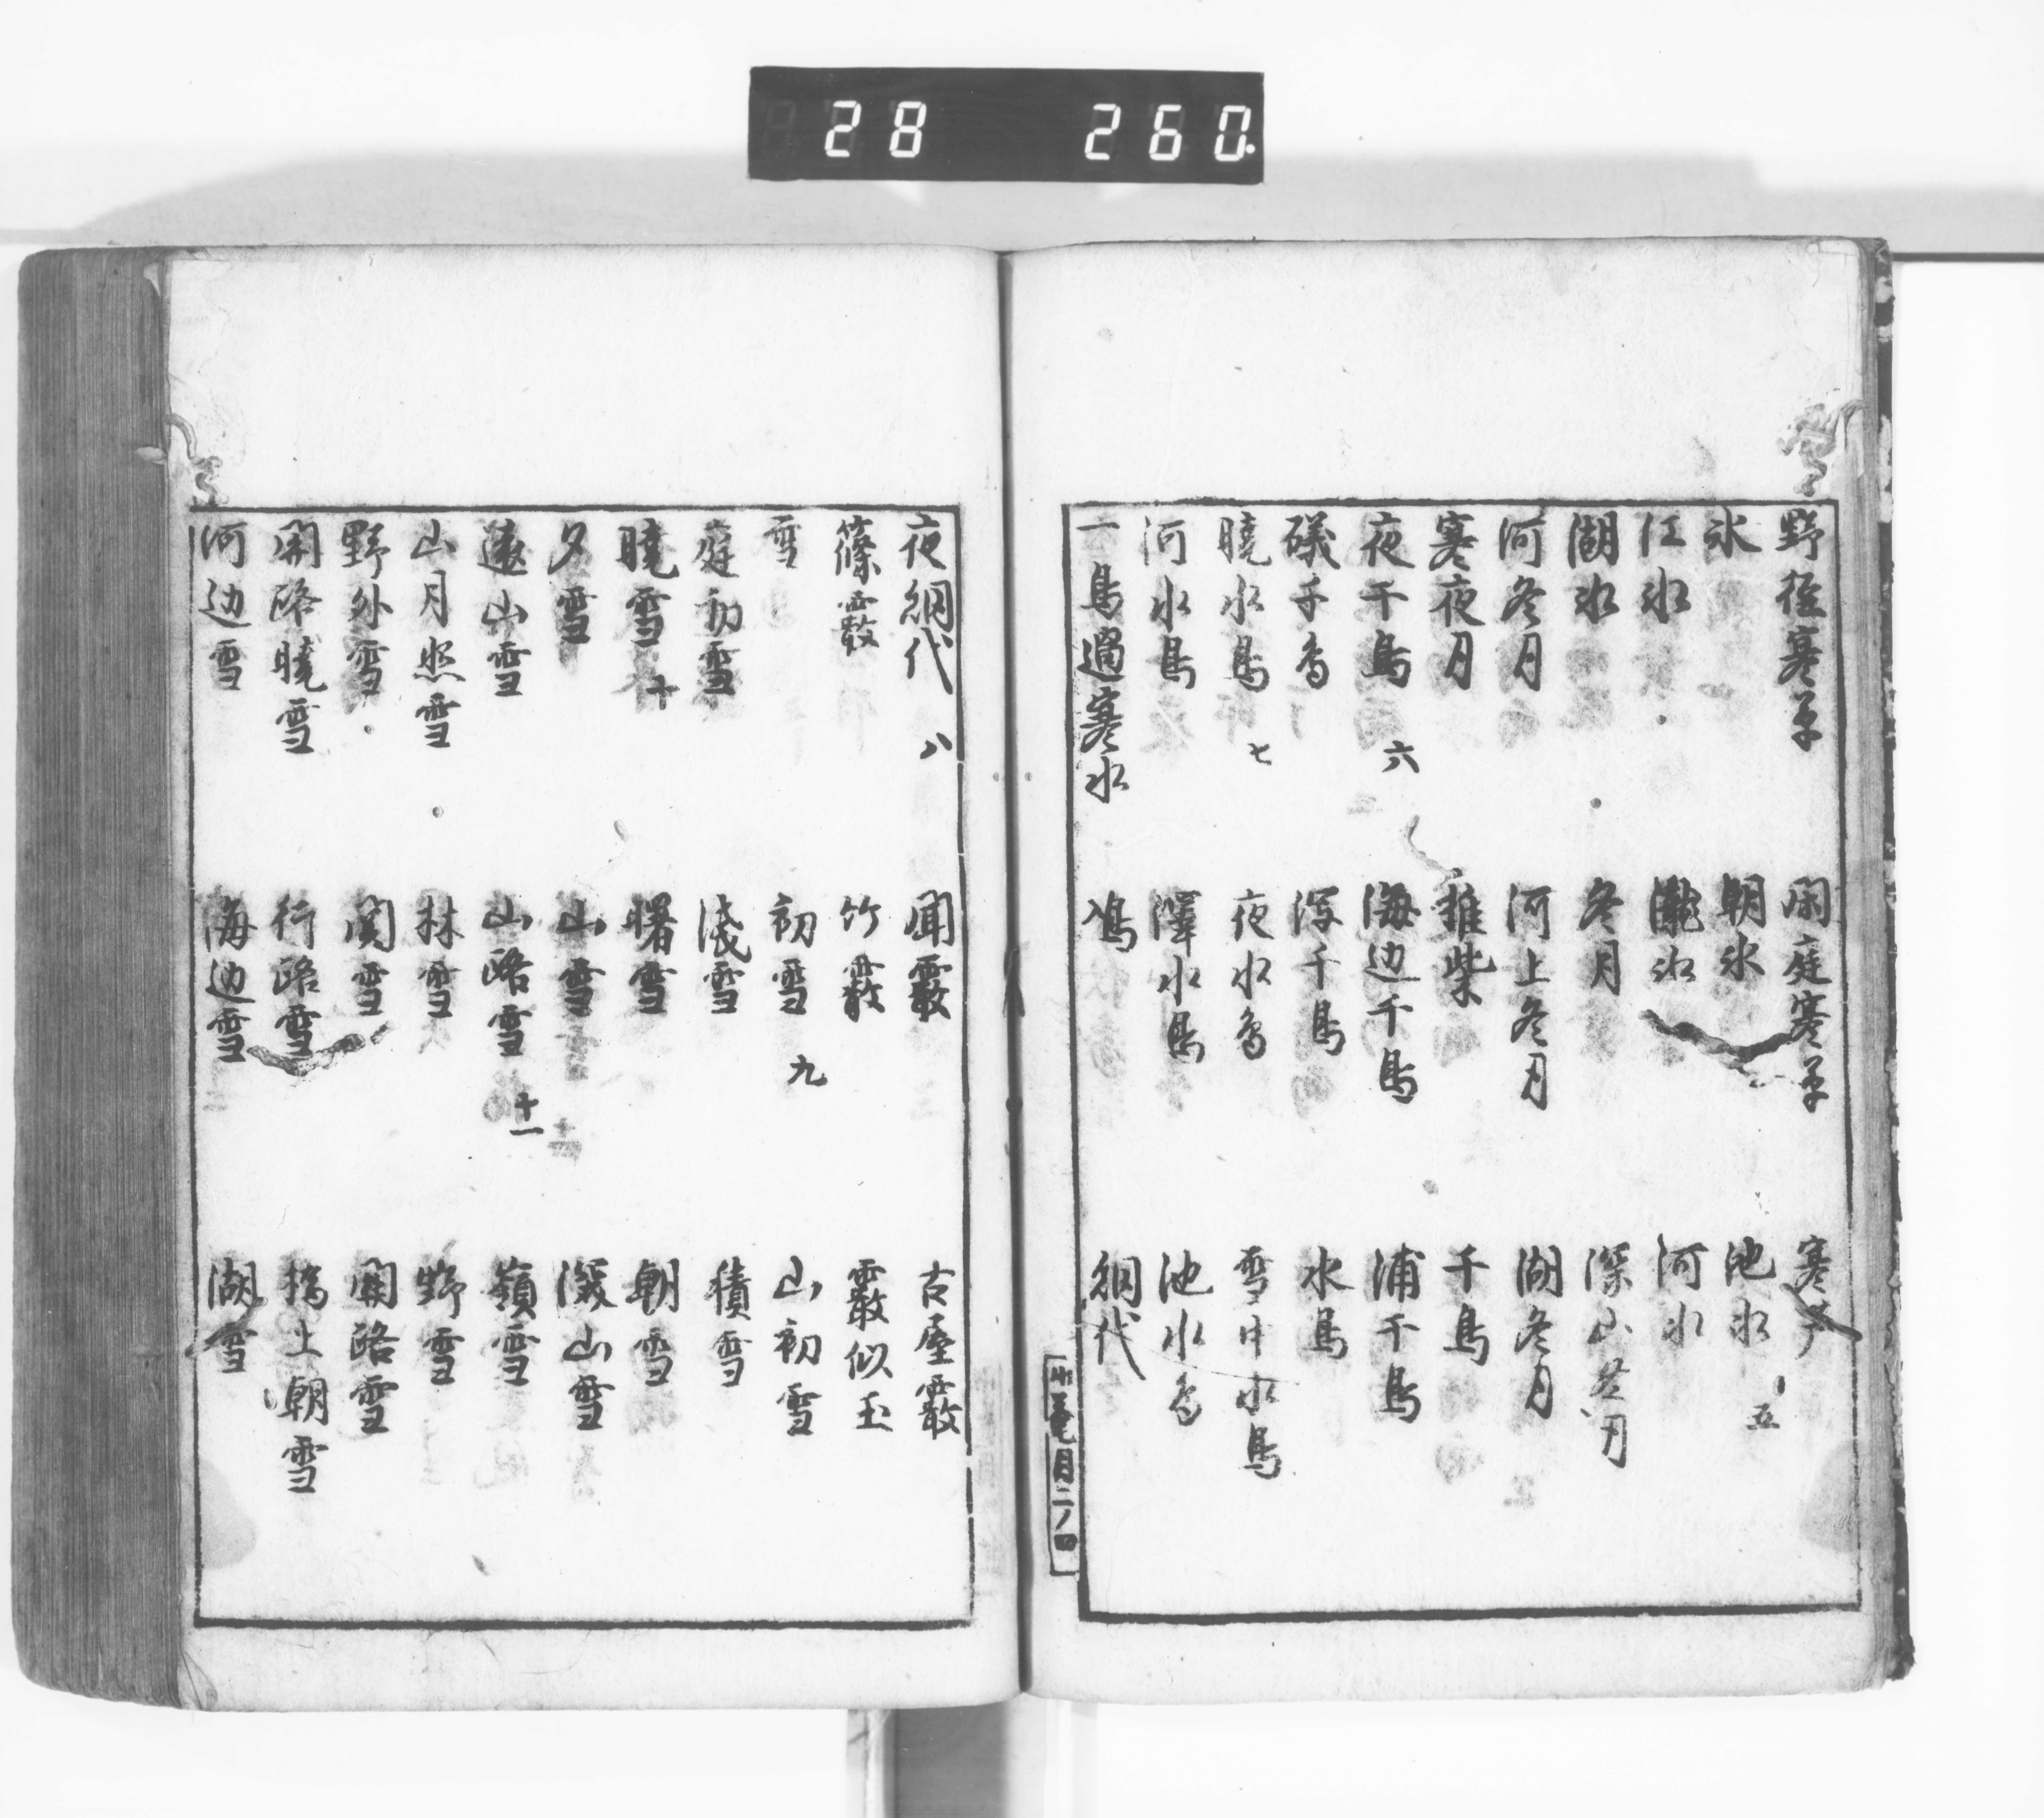 28 260.
野径寒草 閑庭寒草 寒芦
氷 朝氷 池氷 五
江氷 瀧氷 河氷
湖氷 冬月 深山冬月
河冬月 河上冬月 湖冬月
寒夜月 椎柴 千鳥
夜千鳥 六 海辺千鳥 浦千鳥
礒千鳥 泻千鳥 水鳥
暁水鳥 七 夜水鳥 雪中水鳥
河水鳥 澤水鳥 池水鳥
一鳥過寒水 鳰 網代
月二ノ四
夜網代 八 聞霰 古屋霰
篠霰 竹霰 霰似玉
雪 初雪 九 山初雪
庭初雪 浅雪 積雪
暁雪 十 曙雪 朝雪
夕雪 山雪 深山雪
遠山雪 山路雪 十一 嶺雪
山月照雪 林雪 野雪
野外雪 関雪 関路雪
関路暁雪 行路雪 橋上朝雪
河辺雪 海辺雪 湖雪